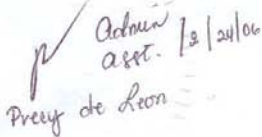 Admin
asst. 12/24/06
Precy de Leon